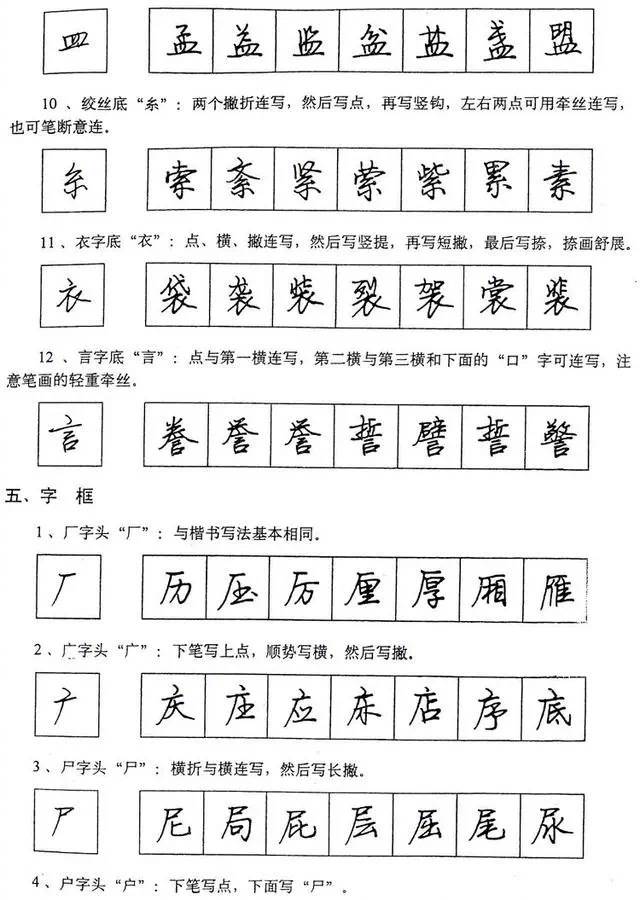 皿 孟 益 监 盆 盐 盏 盟
10 、绞丝底“糸”：两个撇折连写，然后写点，再写竖钩，左右两点可用牵丝连写，
也可笔断意连。
糸 索 紊 紧 萦 紫 累 素
11 、衣字底“衣”：点、横、撇连写，然后写竖提，再写短撇，最后写捺，捺画舒展。
衣 袋 袭 装 裂 袈 裳 裴
12 、言字底“言”：点与第一横连写，第二横与第三横和下面的“口”字可连写，注
意笔画的轻重牵丝。
言 誊 誉 誉 誓 譬 誓 警
五、字 框
1 、厂字头“厂”：与楷书写法基本相同。
厂 历 压 厉 厘 厚 厢 雁
2 、广字头“广”：下笔写上点，顺势写横，然后写撇。
广 庆 庄 应 床 店 序 底
3 、尸字头“尸”：横折与横连写，然后写长撇。
尸 尼 局 屁 层 屈 尾 尿
4 、户字头“户”：下笔写点，下面写“尸”。